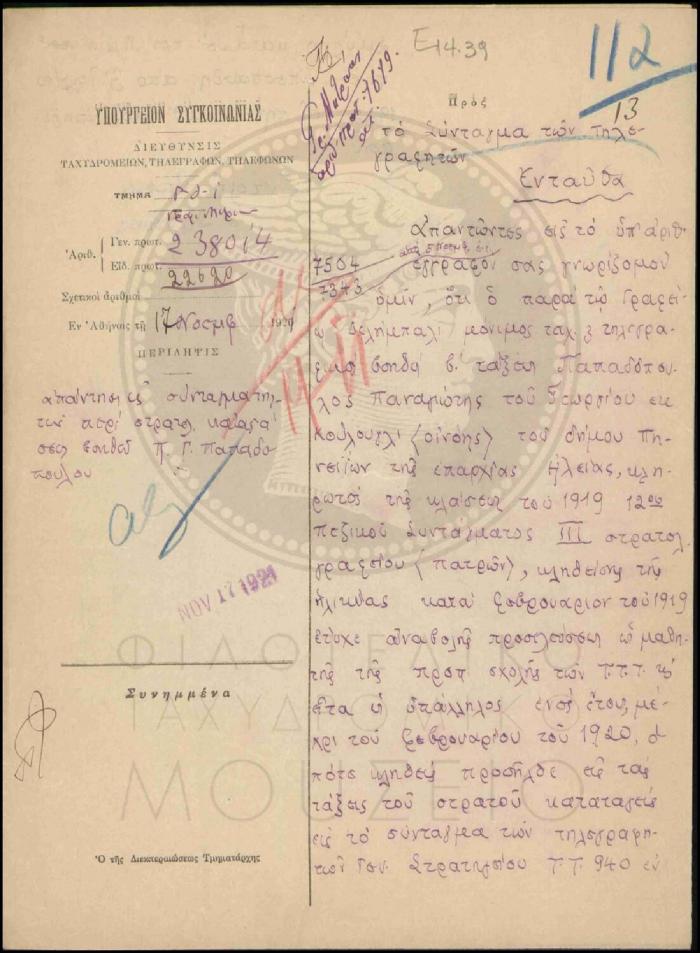 Ε14.39
112
13
ΥΠΟΥΡΓΕΙΟΝ ΣΥΓΚΟΙΝΩΝΙΑΣ
ΔΙΕΥΘΥΝΣΙΣ
ΤΑΧΥΔΡΟΜΕΙΩΝ, ΤΗΛΕΓΡΑΦΩΝ, ΤΗΛΕΦΩΝΩΝ
ΤΜΗΜΑ
Ἀριθ. Γεν. πρωτ. 238014
Εἰδ. πρωτ. 22620
Σχετικοὶ ἀριθμοὶ
Ἐν Ἀθήναις τῇ 17 Νοεμβ 192
ΠΕΡΙΛΗΨΙΣ
ἀπάντησις συνταγμα τη
των περὶ στρατ.
βοηθοῦ Π. Γ. Παπαδο
πούλου
NOV 17 1921
Συνημμένα
Ὁ τῆς Διεκπεραιώσεως Τμηματάρχης
Πρὸς
τὸ Σύνταγμα τῶν Τηλε-
γραφητῶν
Ἐνταῦθα
Ἀπαντῶντες εἰς τὸ ὑπ' ἀριθ
7504
7343
ἔγγραφόν σας γνωρίζομεν
ὑμῖν, ὅτι ὁ παρὰ τῷ Γραφεί-
ῳ μόνιμος ταχ. & τηλεγρα-
βοηθὸ β' τάξεως Παπαδόπου-
λος Παναγιώτης τοῦ Γεωργίου ἐκ
Κούλουγλι (Οἰνόης) τοῦ δήμου Πη-
νείων τῆς ἐπαρχίας Ἠλείας, κλη-
ρωτὸς τῆς κλάσεως τοῦ 1919 12ου
πεζικοῦ Συντάγματος ΙΙΙ στρατολ.
γραφείου (πατρῶν), κληθείσης τῆς
ἡλικίας κατὰ Φεβρουάριον τοῦ 1919
ἔτυχε ἀναβολῆς προσελεύσεως ὡς μαθη-
τὴς τῆς προπ σχολῆς τῶν Τ.Τ.Τ. κ
εἶτα ὡς ὑπάλληλος ἑνὸς ἔτους, μέ-
χρι τοῦ Φεβρουαρίου τοῦ 1920, ὁ
πότε κληθεὶς προσῆλθε εἰς τὰς
τάξεις τοῦ στρατοῦ καταταγεὶς
εἰς τὸ σύνταγμα τῶν τηλεγραφη-
τῶν Γεν. Στρατηγείου Τ.Τ. 940 ἐν
ΦΙΛΟΤΕΛΙΚΟ
ΤΑΧΥΔΡΟΜΙΚΟ
ΜΟΥΣΕΙΟ